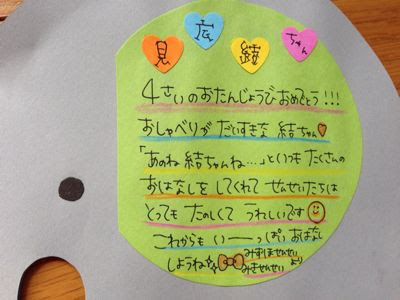 見広結ちゃん
4さいのおたんじょうびおめでとう!!!
おしゃべりが だいすきな 結ちゃん
「あのね 結ちゃんね…」といつも たくさんの
おはなしを してくれて せんせいたちは
とっても たのしくて うれしいです
これからも い――っぱい おはなし
しようね
みずほせんせい
みきせんせい より